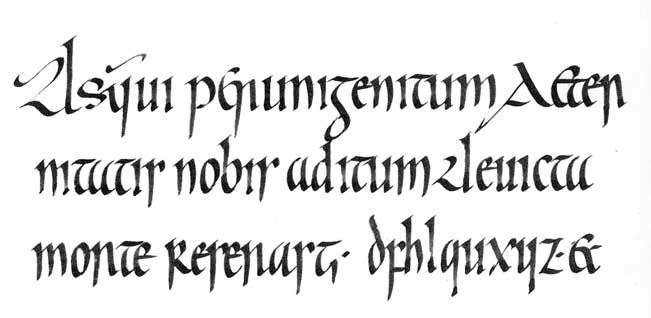 Dsqui punigenitum Aeter
nitatis nobis aditum devicta
morte reserasti· dfhlquxyz·&·